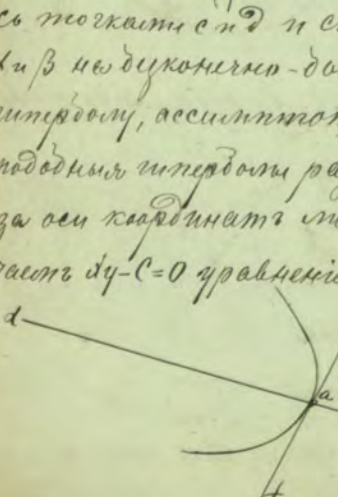 сь точками с и д и с
α и β на безконечно-да
гиперболу, ассимптот
подобныя гиперболы ра
за оси координатъ
чаемъ xy-C=0 уравненіе
α
a